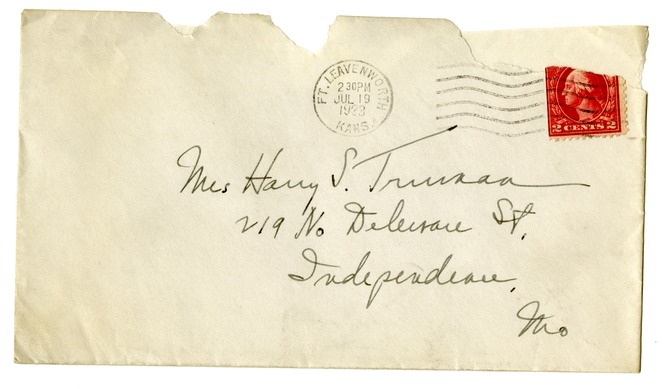 FT. LEAVENWORTH
2 30PM
JUL 19
1923
KANS.
2 CENTS 2
Mrs Harry S. Truman
219 No Delaware St.
Independence,
Mo